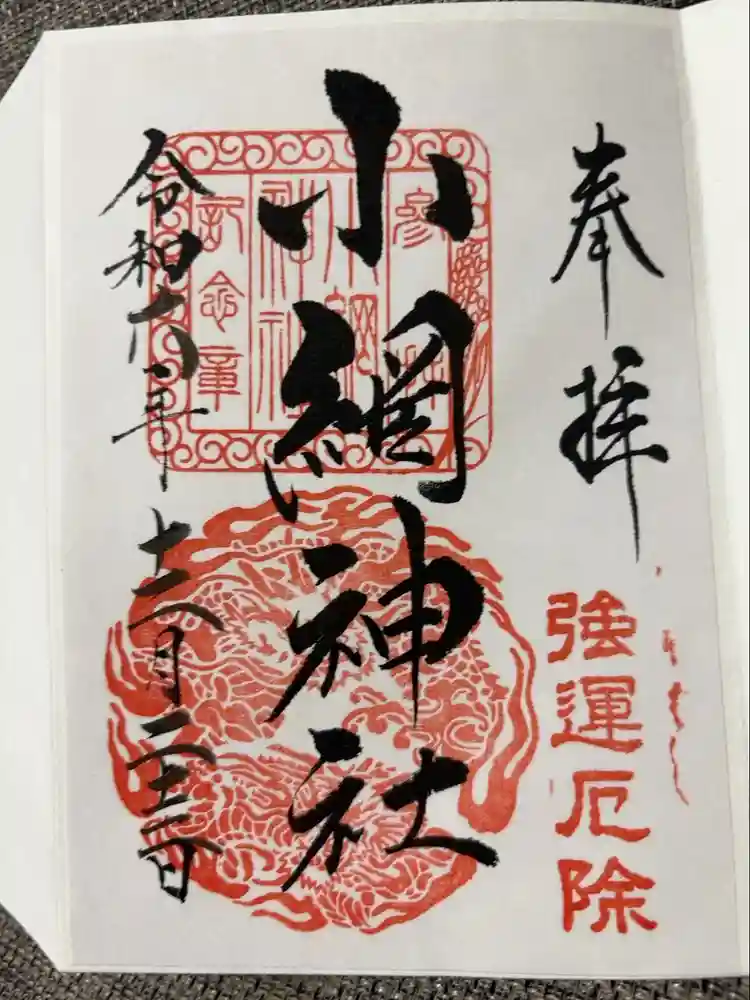 奉拝
強運厄除
小網神社
令和六年十二月二十二日
参拝
小網
神社
記念章